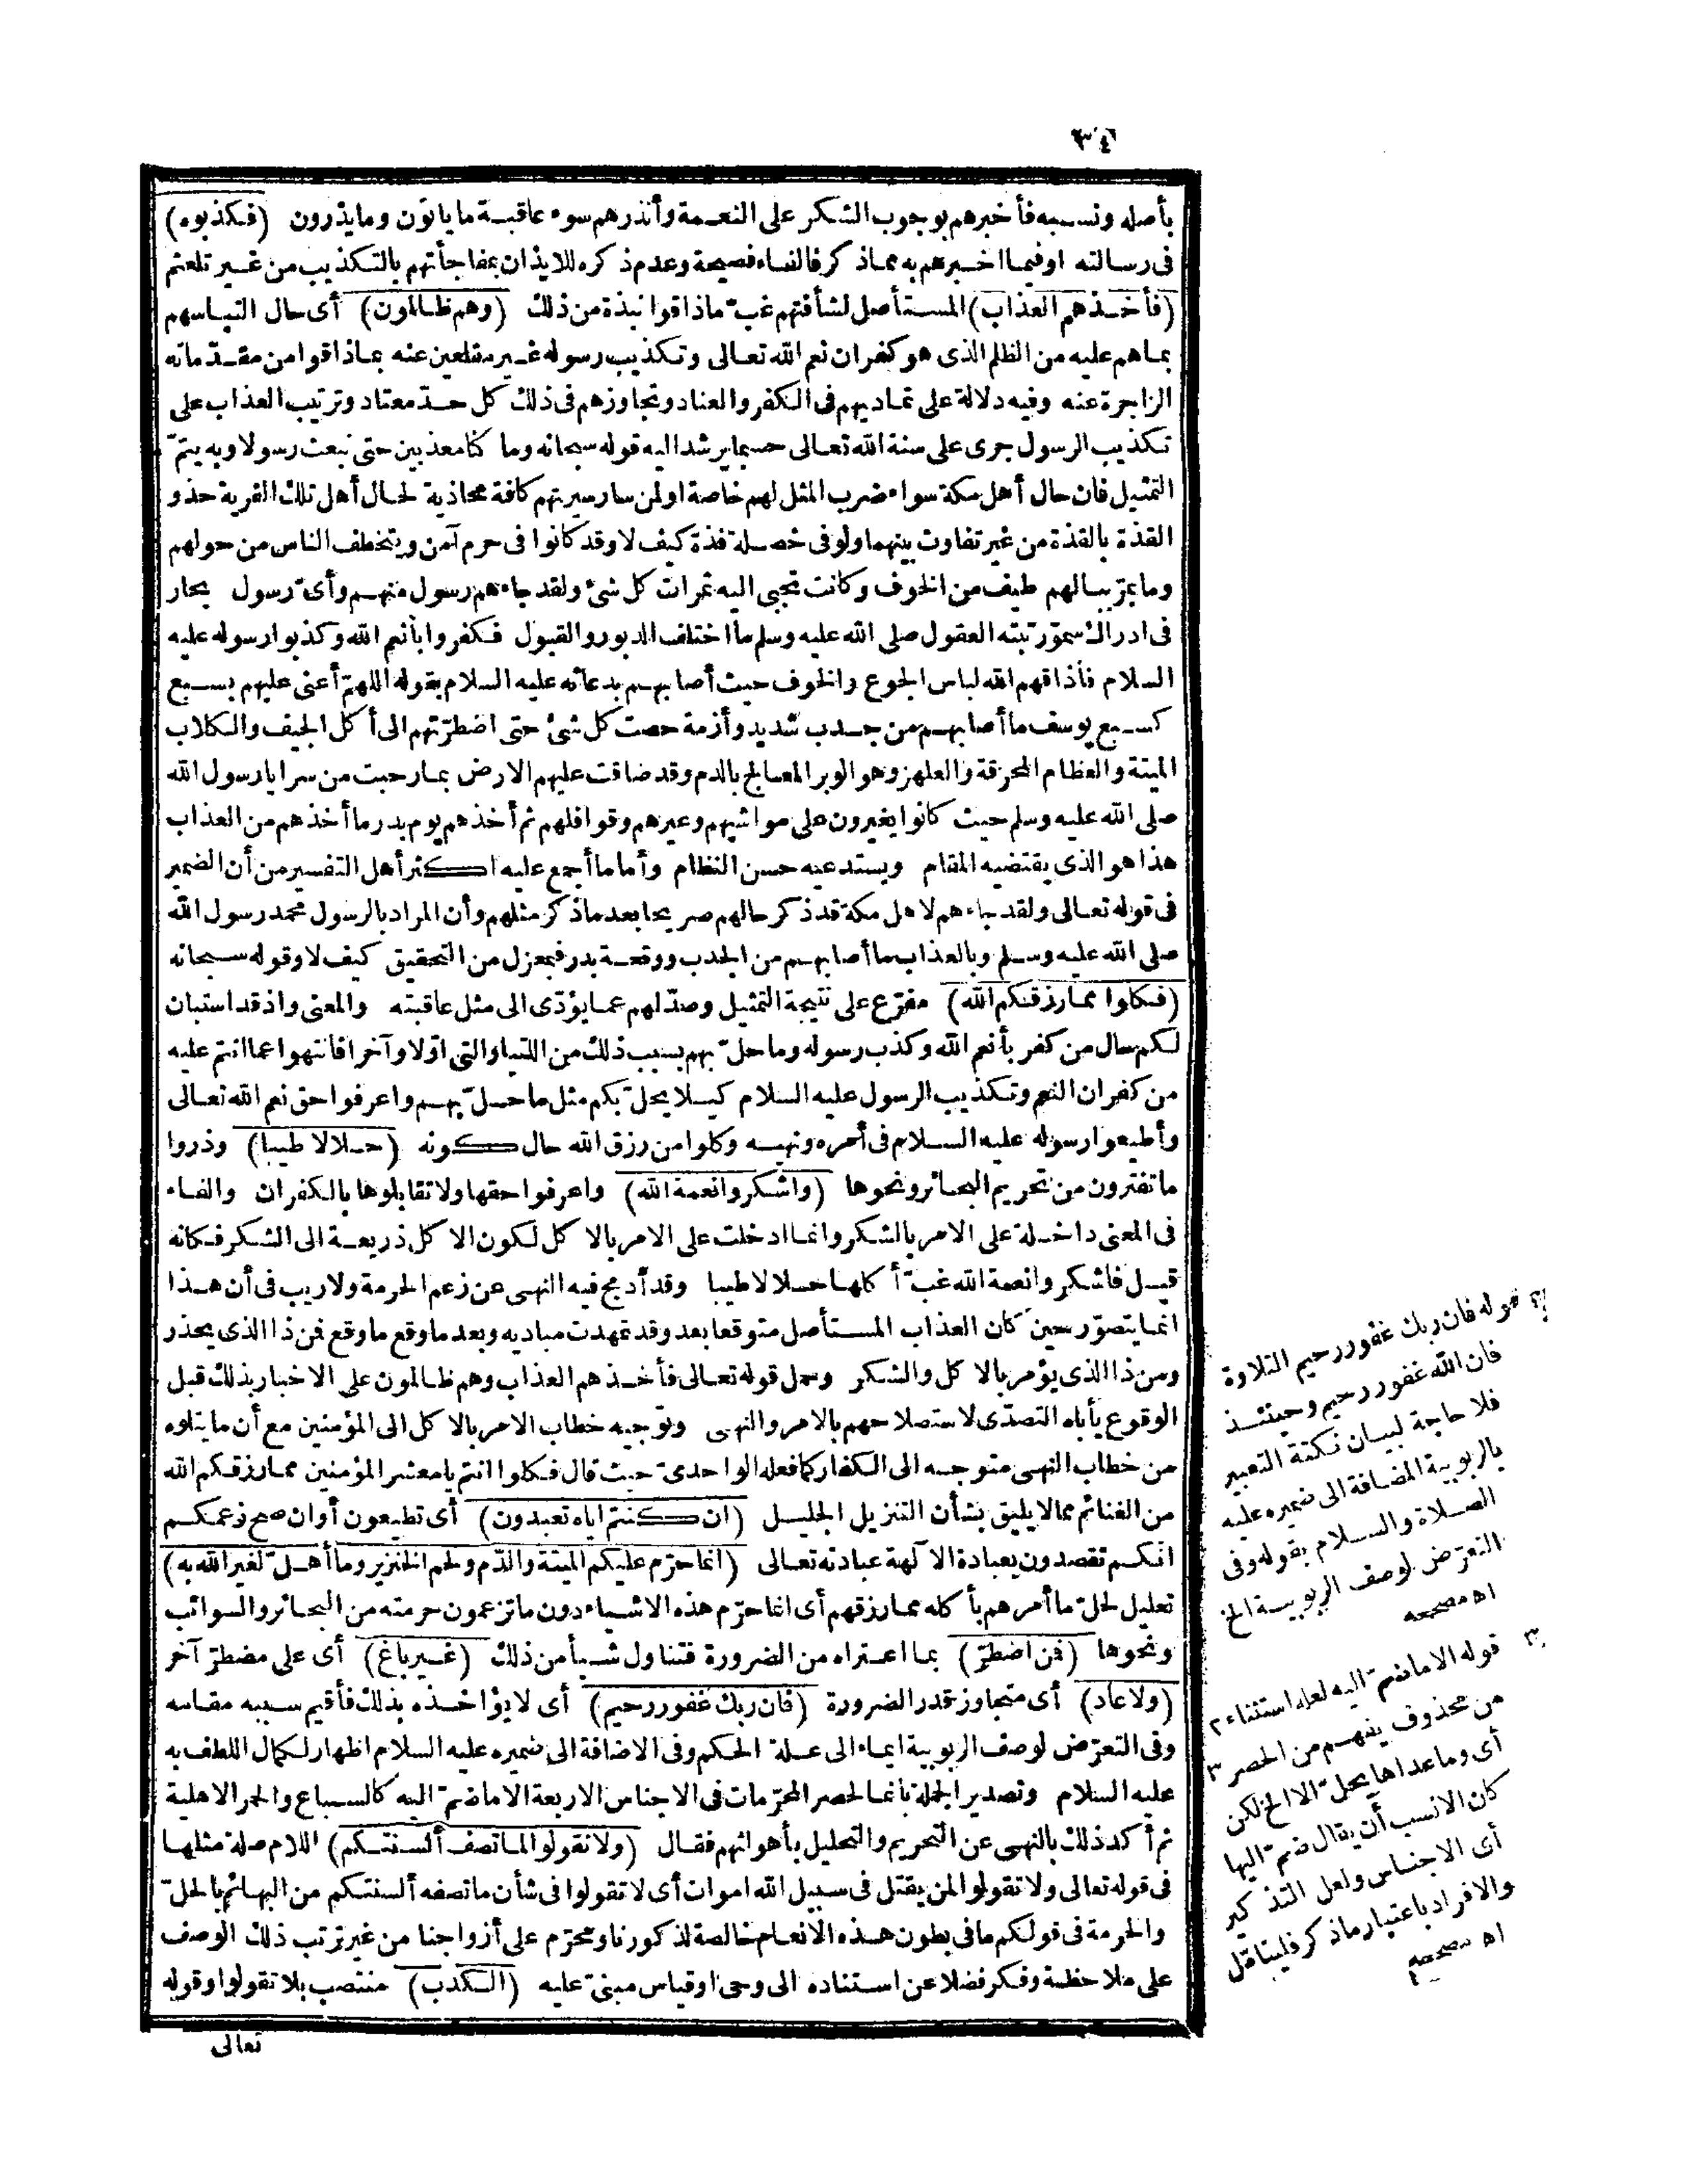 ٣٤٦
بأصله ونسبه فأخبرهم بوجوب الشكر على النعمة وأنذرهم سوء عاقبة ما يأتون وما يذرون (فكذبوه)
فى رسالته اوفيما اخبرهم به مماذكر فالفاء فصيحة وعدم ذكره للايذان بمفاجأتهم بالتكذيب من غير تلعثم
(فأخذهم العذاب) المستأصل لشأفتهم غبّ ماذاقوا نبذة من ذلك (وهم ظالمون) أى حال التباسهم
بماهم عليه من الظلم الذى هو كفران نعم الله تعالى وتكذيب رسوله غير مقلعين عنه بماذاقوا من مقدّماته
الزاجرة عنه وفيه دلالة على تماديهم فى الكفر والعناد وتجاوزهم فى ذلك كل حدّ معتاد وترتيب العذاب على
تكذيب الرسول جرى على سنة الله تعالى حسبما يرشد اليه قوله سبحانه وما كنا معذبين حتى نبعث رسولا وبه يتمّ
التمثيل فان حال أهل مكة سواء ضرب المثل لهم خاصة اولمن سار سيرتهم كافة محاذية لحال أهل تلك القرية حذو
القذة بالقذة من غير تفاوت بينهما ولو فى خصلة فذة كيف لا وقد كانوا فى حرم آمن ويتخطف الناس من حولهم
وما يمرّ ببالهم طيف من الخوف وكانت تجبى اليه ثمرات كل شئ ولقد جاءهم رسول منهم وأىّ رسول يحار
فى ادراك سموّ رتبته العقول صلى الله عليه وسلم ما اختلف الدبور والقبول فكفروا بأنعم الله وكذبوا رسوله عليه
السلام فأذاقهم الله لباس الجوع والخوف حيث أصابهم بدعائه عليه السلام بقوله اللهمّ أعنى عليهم بسبع
كسبع يوسف ما أصابهم من جدب شديد وأزمة حصت كل شئ حتى اضطرّتهم الى أكل الجيف والكلاب
الميتة والعظام المحرقة والعلهز وهو الوبر المعالج بالدم وقد ضاقت عليهم الارض بمارحبت من سرايا رسول الله
صلى الله عليه وسلم حيث كانوا يغيرون على مواشيهم وعيرهم وقوافلهم ثم أخذهم يوم بدر ما أخذهم من العذاب
هذا هو الذى يقتضيه المقام ويستدعيه حسن النظام وأما ما أجمع عليه اكثر أهل التفسير من أن الضمير
فى قوله تعالى ولقد جاءهم لاهل مكة قد ذكر حالهم صريحا بعد ماذكر مثلهم وأن المراد بالرسول محمد رسول الله
صلى الله عليه وسلم وبالعذاب ما أصابهم من الجدب ووقعة بدر فبمعزل من التحقيق كيف لا وقوله سبحانه
(فكلوا مما رزقكم الله) مفرّع على نتيجة التمثيل وصدّ لهم عما يؤدّى الى مثل عاقبته والمعنى واذ قد استبان
لكم حال من كفر بأنعم الله وكذب رسوله وما حلّ بهم بسبب ذلك من اللتيا والتى اوّلا وآخرا فانتهوا عما انتم عليه
من كفران النعم وتكذيب الرسول عليه السلام كيلا يحلّ بكم مثل ما حلّ بهم واعرفوا حق نعم الله تعالى
وأطيعوا رسوله عليه السلام فى أمره ونهيه وكلوا من رزق الله حال كونه (حلالا طيبا) وذروا
ما تفترون من تحريم البحائر ونحوها (واشكروا نعمة الله) واعرفوا حقها ولا تقابلوها بالكفران والفاء
فى المعنى داخلة على الامر بالشكر وانما ادخلت على الامر بالاكل لكون الاكل ذريعة الى الشكر فكانه
قيل فاشكروا نعمة الله غبّ أكلها حلالا طيبا وقد أدمج فيه النهى عن زعم الحرمة ولاريب فى أن هذا
انما يتصوّر حين كان العذاب المستأصل متوقعا بعد وقد تمهدت مباديه وبعد ما وقع ما وقع فمن ذا الذى يحذر
ومن ذا الذى يؤمر بالاكل والشكر وحمل قوله تعالى فأخذهم العذاب وهم ظالمون على الاخبار بذلك قبل
الوقوع يأباه التصدّى لاستصلاحهم بالامر والنهى وتوجيه خطاب الامر بالاكل الى المؤمنين مع أن ما يتلوه
من خطاب النهى متوجه الى الكفار كما فعله الواحدىّ حيث قال فكلوا انتم يا معشر المؤمنين مما رزقكم الله
من الغنائم مما لا يليق بشأن التنزيل الجليل (ان كنتم اياه تعبدون) أى تطيعون أوان صح زعمكم
انكم تقصدون بعبادة الآلهة عبادته تعالى (انما حرّم عليكم الميتة والدّم ولحم الخنزير وما أهلّ لغير الله به)
تعليل لحلّ ما أمرهم بأكله مما رزقهم أى انما حرّم هذه الاشياء دون ما تزعمون حرمته من البحائر والسوائب
ونحوها (فمن اضطرّ) بما اعتراه من الضرورة فتناول شيأ من ذلك (غير باغ) أى على مضطرّ آخر
(ولا عاد) أى متجاوز قدر الضرورة (فان ربك غفور رحيم) أى لا يؤاخذه بذلك فأقيم سببه مقامه
وفى التعرّض لوصف الربوبية ايماء الى علة الحكم وفى الاضافة الى ضميره عليه السلام اظهار لكمال اللطف به
عليه السلام وتصدير الجملة بانما لحصر المحرّمات فى الاجناس الاربعة الا ما ضمّ اليه كالسباع والحمر الاهلية
ثم أكد ذلك بالنهى عن التحريم والتحليل بأهوائهم فقال (ولا تقولوا لما تصف ألسنتكم) اللام صلة مثلها
فى قوله تعالى ولا تقولوا لمن يقتل فى سبيل الله اموات أى لا تقولوا فى شأن ما تصفه ألسنتكم من البهائم بالحلّ
والحرمة فى قولكم ما فى بطون هذه الانعام خالصة لذكورنا ومحرّم على أزواجنا من غير ترتب ذلك الوصف
على ملاحظة وفكر فضلا عن استناده الى وحى اوقياس مبنىّ عليه (الكذب) منتصب بلا تقولوا وقوله
تعالى
قوله فان ربك غفور رحيم التلاوة
فان الله غفور رحيم وحينئذ
فلا حاجة لبيان نكتة التعبير
بالربوبية المضافة الى ضميره عليه
الصلاة والسلام بقوله وفى
التعرّض لوصف الربوبية الخ
اه مصححه
٣ قوله الا ما ضمّ اليه لعله استثناء ٢
من محذوف يفهم من الحصر ٣
أى وما عداها يحلّ الا الخ لكن
كان الانسب أن يقال ضمّ اليها
أى الاجناس ولعل التذكير
والافراد باعتبار ماذكر فليتأمّل
اه مصححه